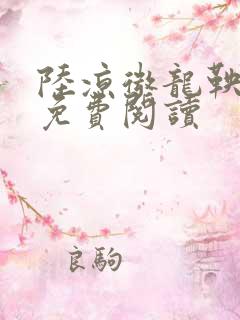 陸涼徵龍鞅
免費閱讀
良駒